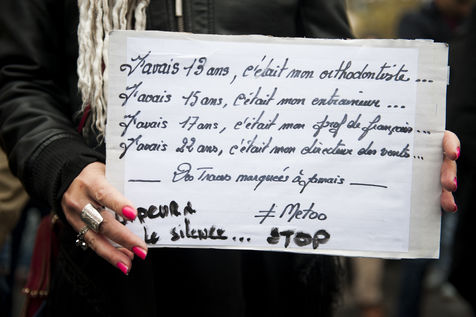 J'avais 13 ans, c'était mon orthodontiste...
J'avais 15 ans, c'était mon entraineur...
J'avais 17 ans, c'était mon prof de français...
J'avais 22 ans, c'était mon directeur des ventes...
Des Traces marquées à jamais
PEUR
≠ Metoo
le silence... STOP